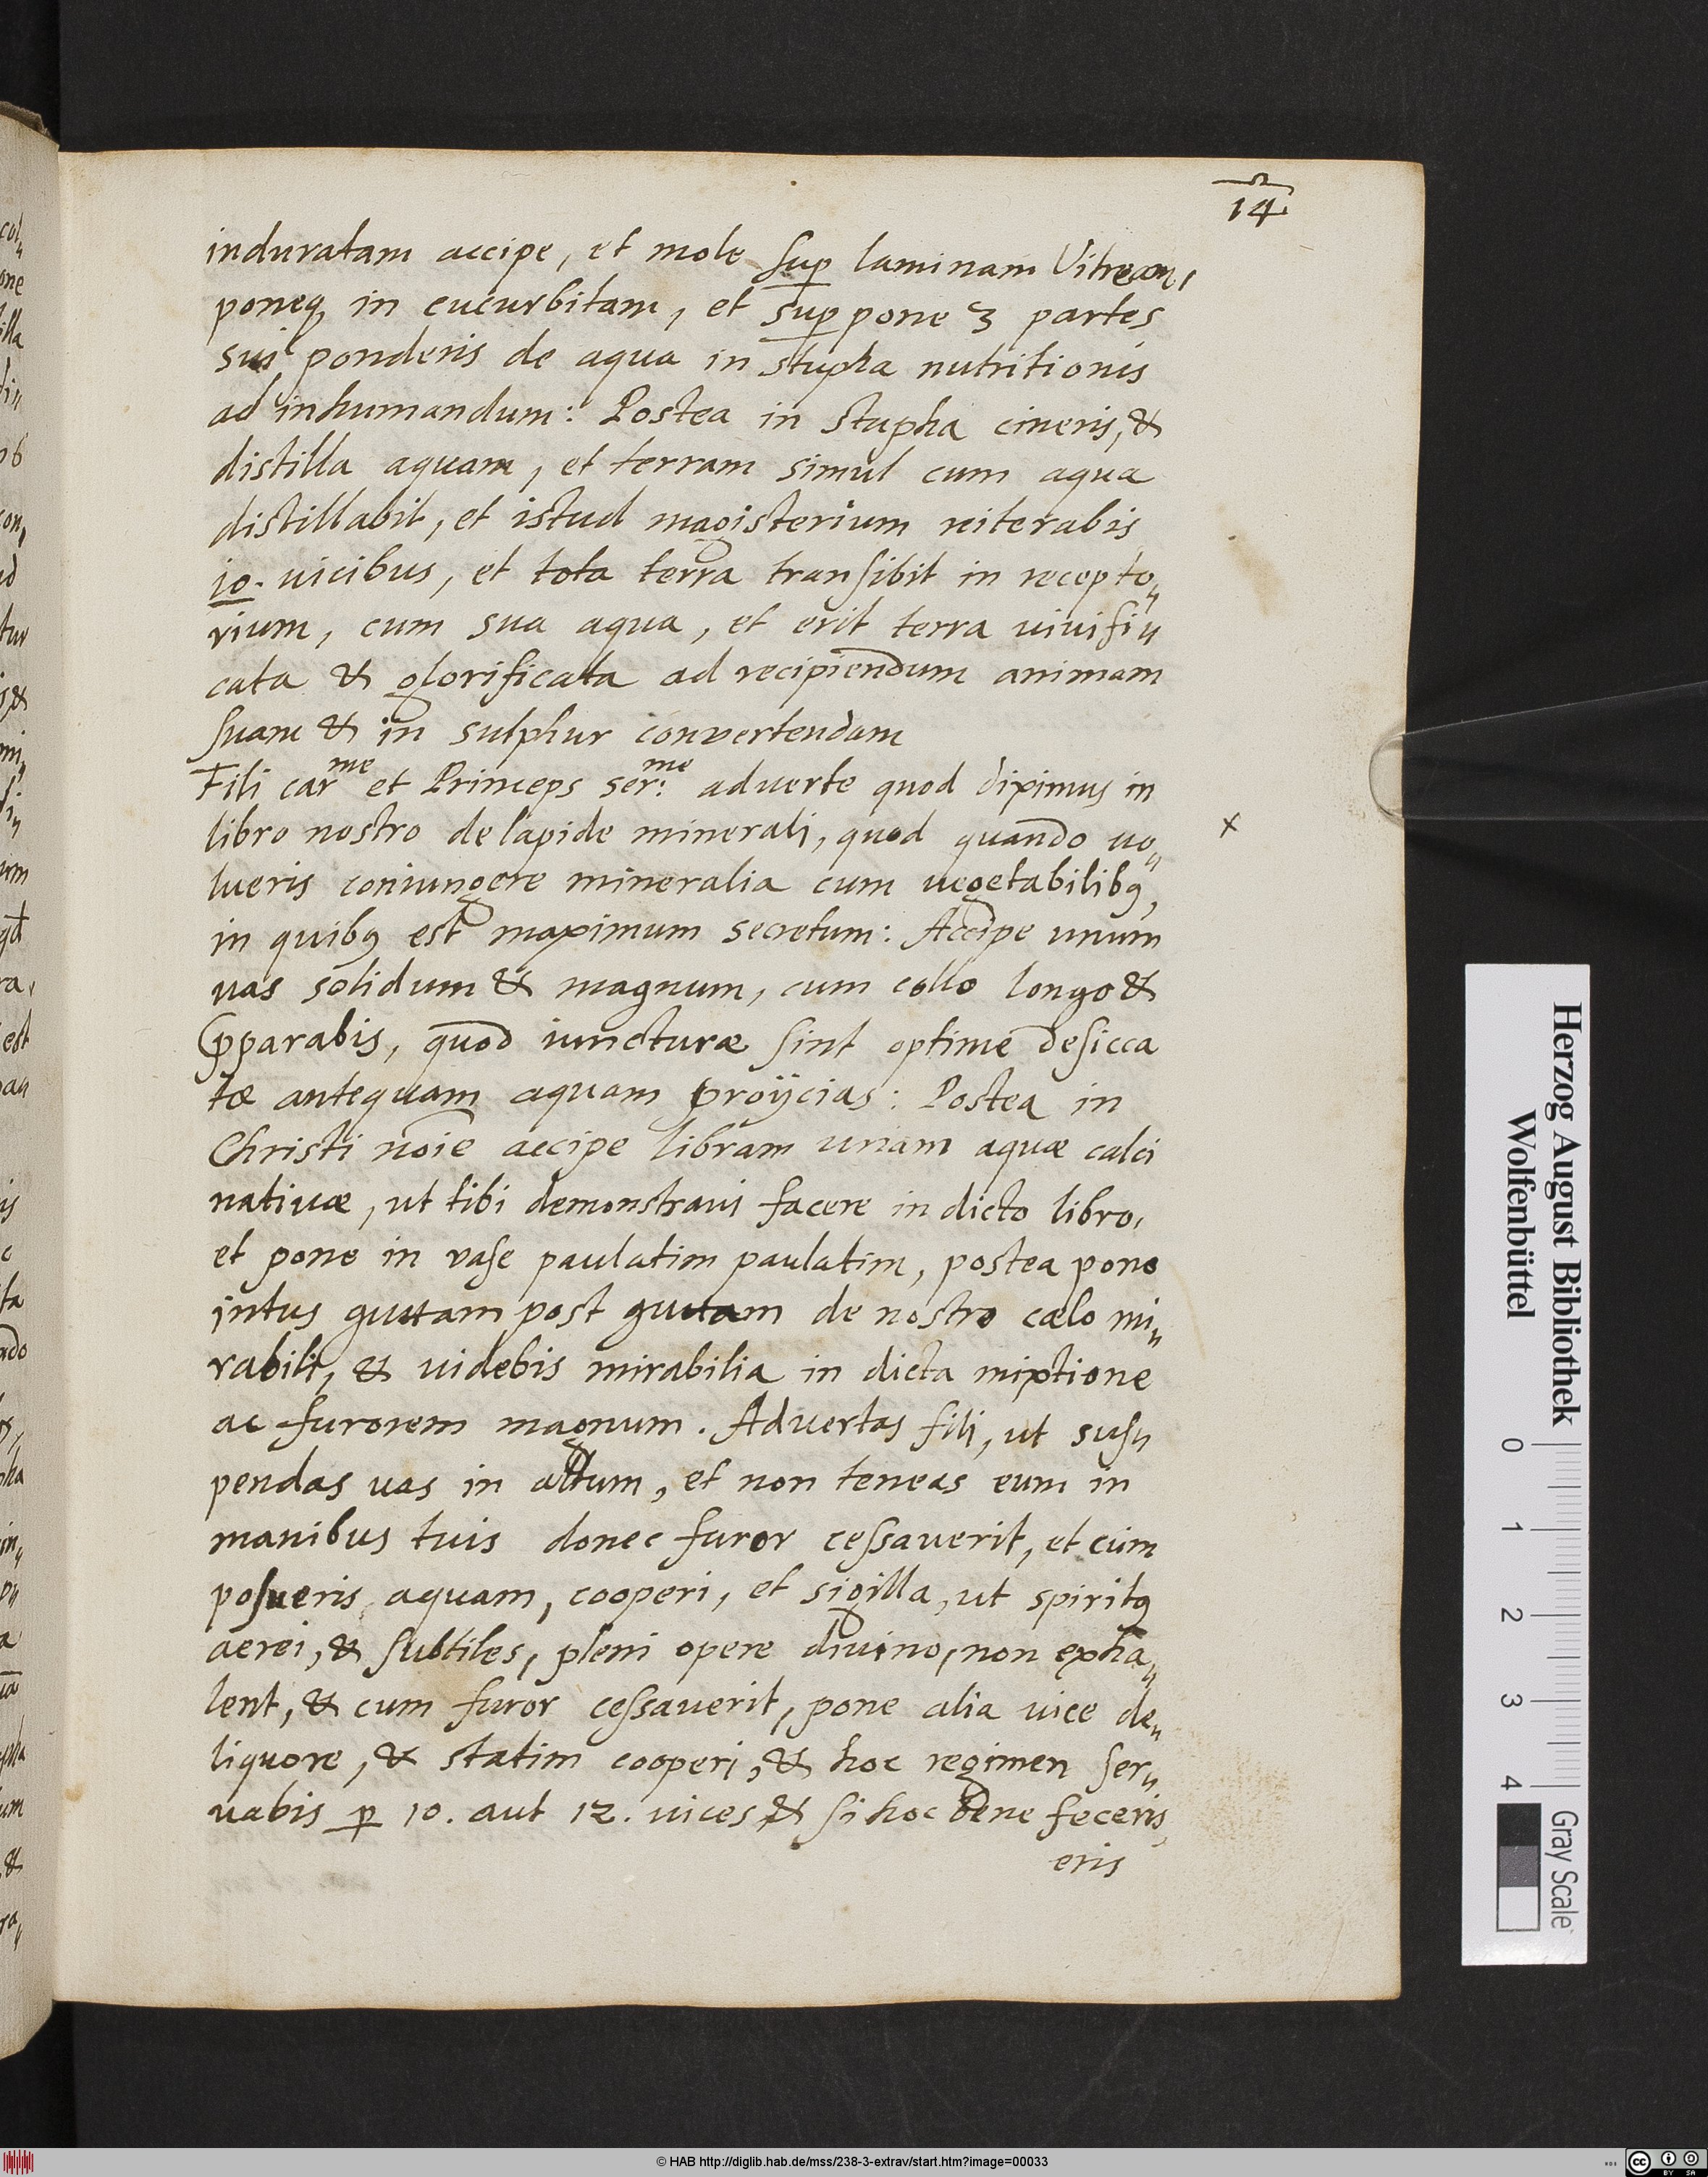 14
induratam accipe, et mole sup laminam Vitream,
poneq, in cucurbitam, et suppone 3 partes
sui ponderis de aqua in stupha nutritionis
ad inhumandum: Postea in stupha cineris, &
distilla aquam, et terram simul cum aqua
distillabit, et istud magisterium reiterabis
io. vicibus, et tota terra transibit in recepto„
rium, cum sua aqua, et erit terra vivifi„
cata & glorificata ad recipiendum animam
suam & in sulphur convertendam
Fili carme et Princeps ser:me adverte quod diximus in
libro nostro de lapide minerali, quod quando uo„ x
lueris coniungere mineralia cum uegetabilibꝰ,
in quibꝰ est maximum secretum: Accipe unum
uas solidum & magnum, cum collo longo &
p̄parabis, quod iuncturæ sint optime desicca
tæ antequam aquam proijcias: Postea in
Christi noīe accipe libram unam aquæ calci
natiuæ, ut tibi demonstraui facere in dicto libro,
et pone in vase paulatim paulatim, postea pone
intus guttam post guttam de nostro cælo mi„
rabili, & uidebis mirabilia in dicta mixtione
ac furorem magnum. Advertas fili, ut sus„
pendas uas in altum, et non teneas eum in
manibus tuis donec furor cessauerit, et cum
posueris aquam, cooperi, et sigilla, ut spiritꝰ
aerei, & subtiles, pleni opere divino, non exha„
lent, & cum furor cessauerit, pone alia vice de„
liquore, & statim cooperi, & hoc regimen ser„
uabis ꝑ 10. aut 12. uices & si hoc bene feceris,
eris
Herzog August Bibliothek
Wolfenbüttel
0 1 2 3 4
Gray Scale
© HAB http://diglib.hab.de/mss/238-3-extrav/start.htm?image=00033